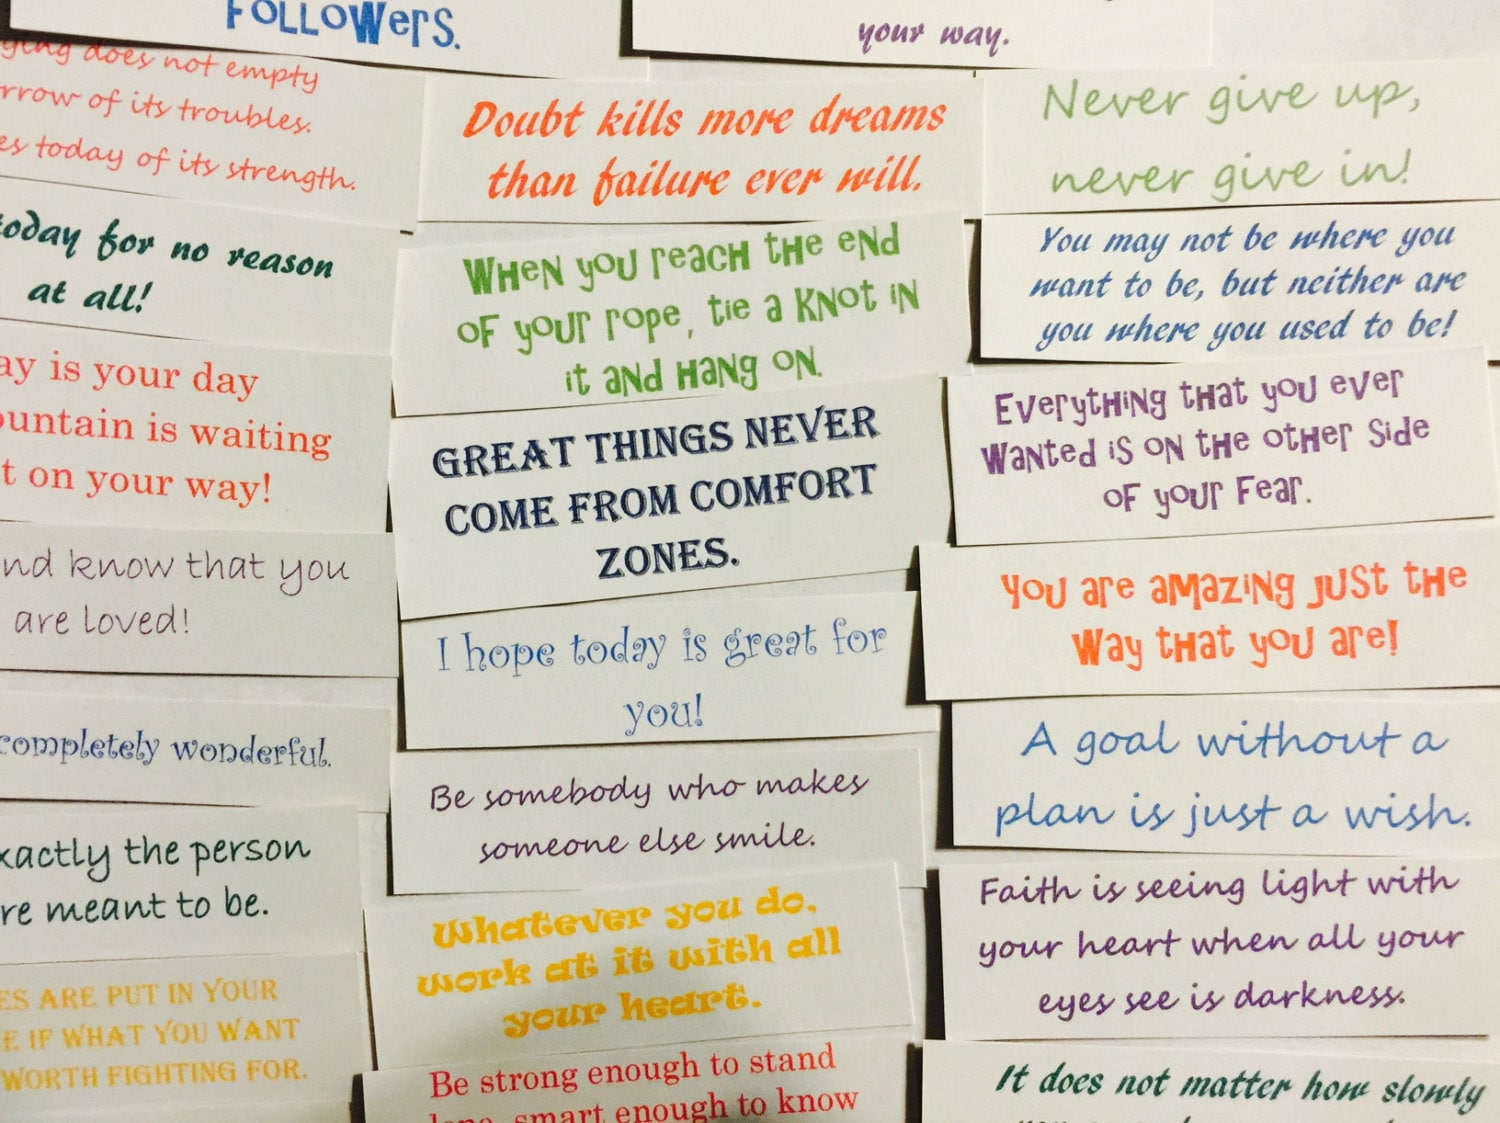 FOLLOWERS.
your way.
does not empty
of its troubles.
today of its strength.
today for no reason
at all!
is your day
is waiting
on your way!
know that you
are loved!
completely wonderful.
the person
meant to be.
ARE PUT IN YOUR
IF WHAT YOU WANT
WORTH FIGHTING FOR.
Doubt kills more dreams
than failure ever will.
When you reach the end
of your rope, tie a knot in
it and hang on.
GREAT THINGS NEVER
COME FROM COMFORT
ZONES.
I hope today is great for
you!
Be somebody who makes
someone else smile.
Whatever you do,
work at it with all
your heart.
Be strong enough to stand
smart enough to know
Never give up,
never give in!
You may not be where you
want to be, but neither are
you where you used to be!
Everything that you ever
wanted is on the other side
of your fear.
You are amazing just the
way that you are!
A goal without a
plan is just a wish.
Faith is seeing light with
your heart when all your
eyes see is darkness.
It does not matter how slowly